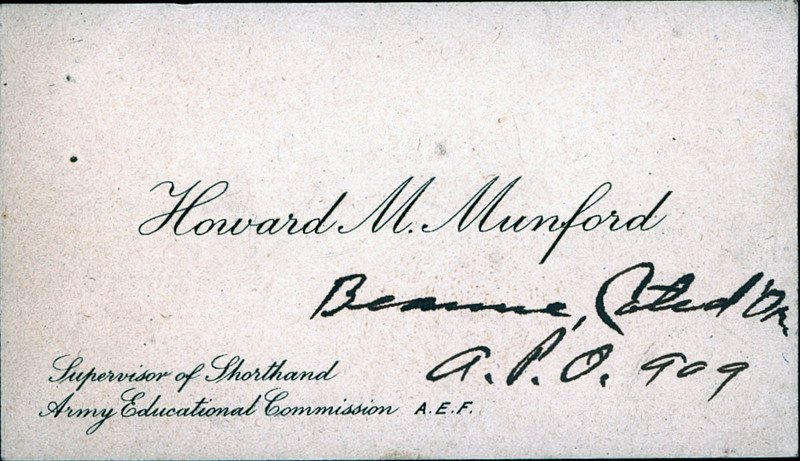 Howard M. Munford
Beaune, Cote d'Or
A.P.O. 909
Supervisor of Shorthand
Army Educational Commission A.E.F.